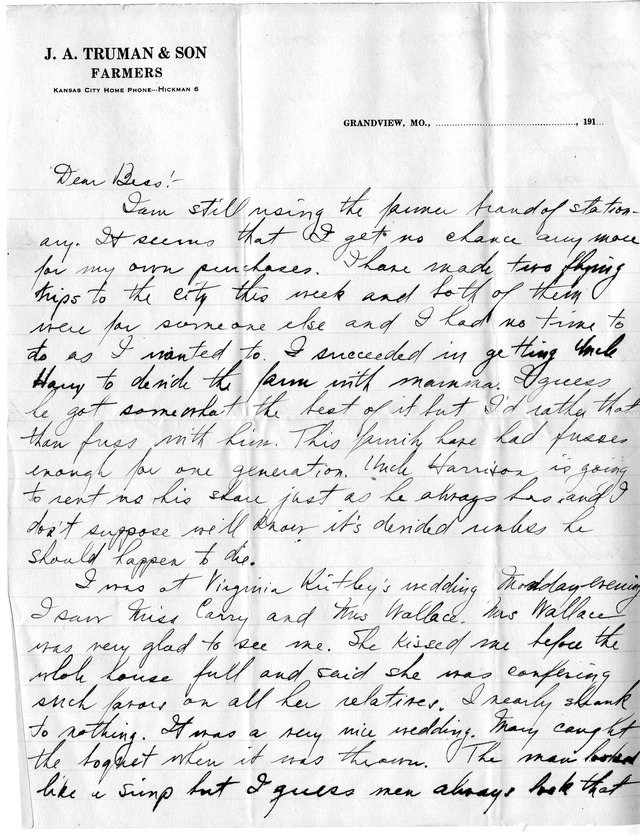 J. A. TRUMAN & SON
FARMERS
KANSAS CITY HOME PHONE---HICKMAN 6
GRANDVIEW, MO., ..............................................., 191...
Dear Bess:-
I am still using the farmer brand of station-
ary. It seems that I get no chance any more
for my own purchases. I have made two flying
trips to the city this week and both of them
were for someone else and I had no time to
do as I wanted to. I succeeded in getting Uncle
Harry to devide the farm with mamma. I guess
he got somewhat the best of it but I'd rather that
than fuss with him. This family have had fusses
enough for one generation. Uncle Harrison is going
to rent us his share just as he always has and I
don't suppose we'll know it's decided unless he
should happen to die.
I was at Virginia Kirtley's wedding Monday evening
I saw Miss Carry and Mrs Wallace. Mrs Wallace
was very glad to see me. She kissed me before the
whole house full and said she was confering
such favors on all her relatives. I nearly shrank
to nothing. It was a very nice wedding. Mary caught
the boquet when it was thrown. The man looked
like a simp but I guess men always look that